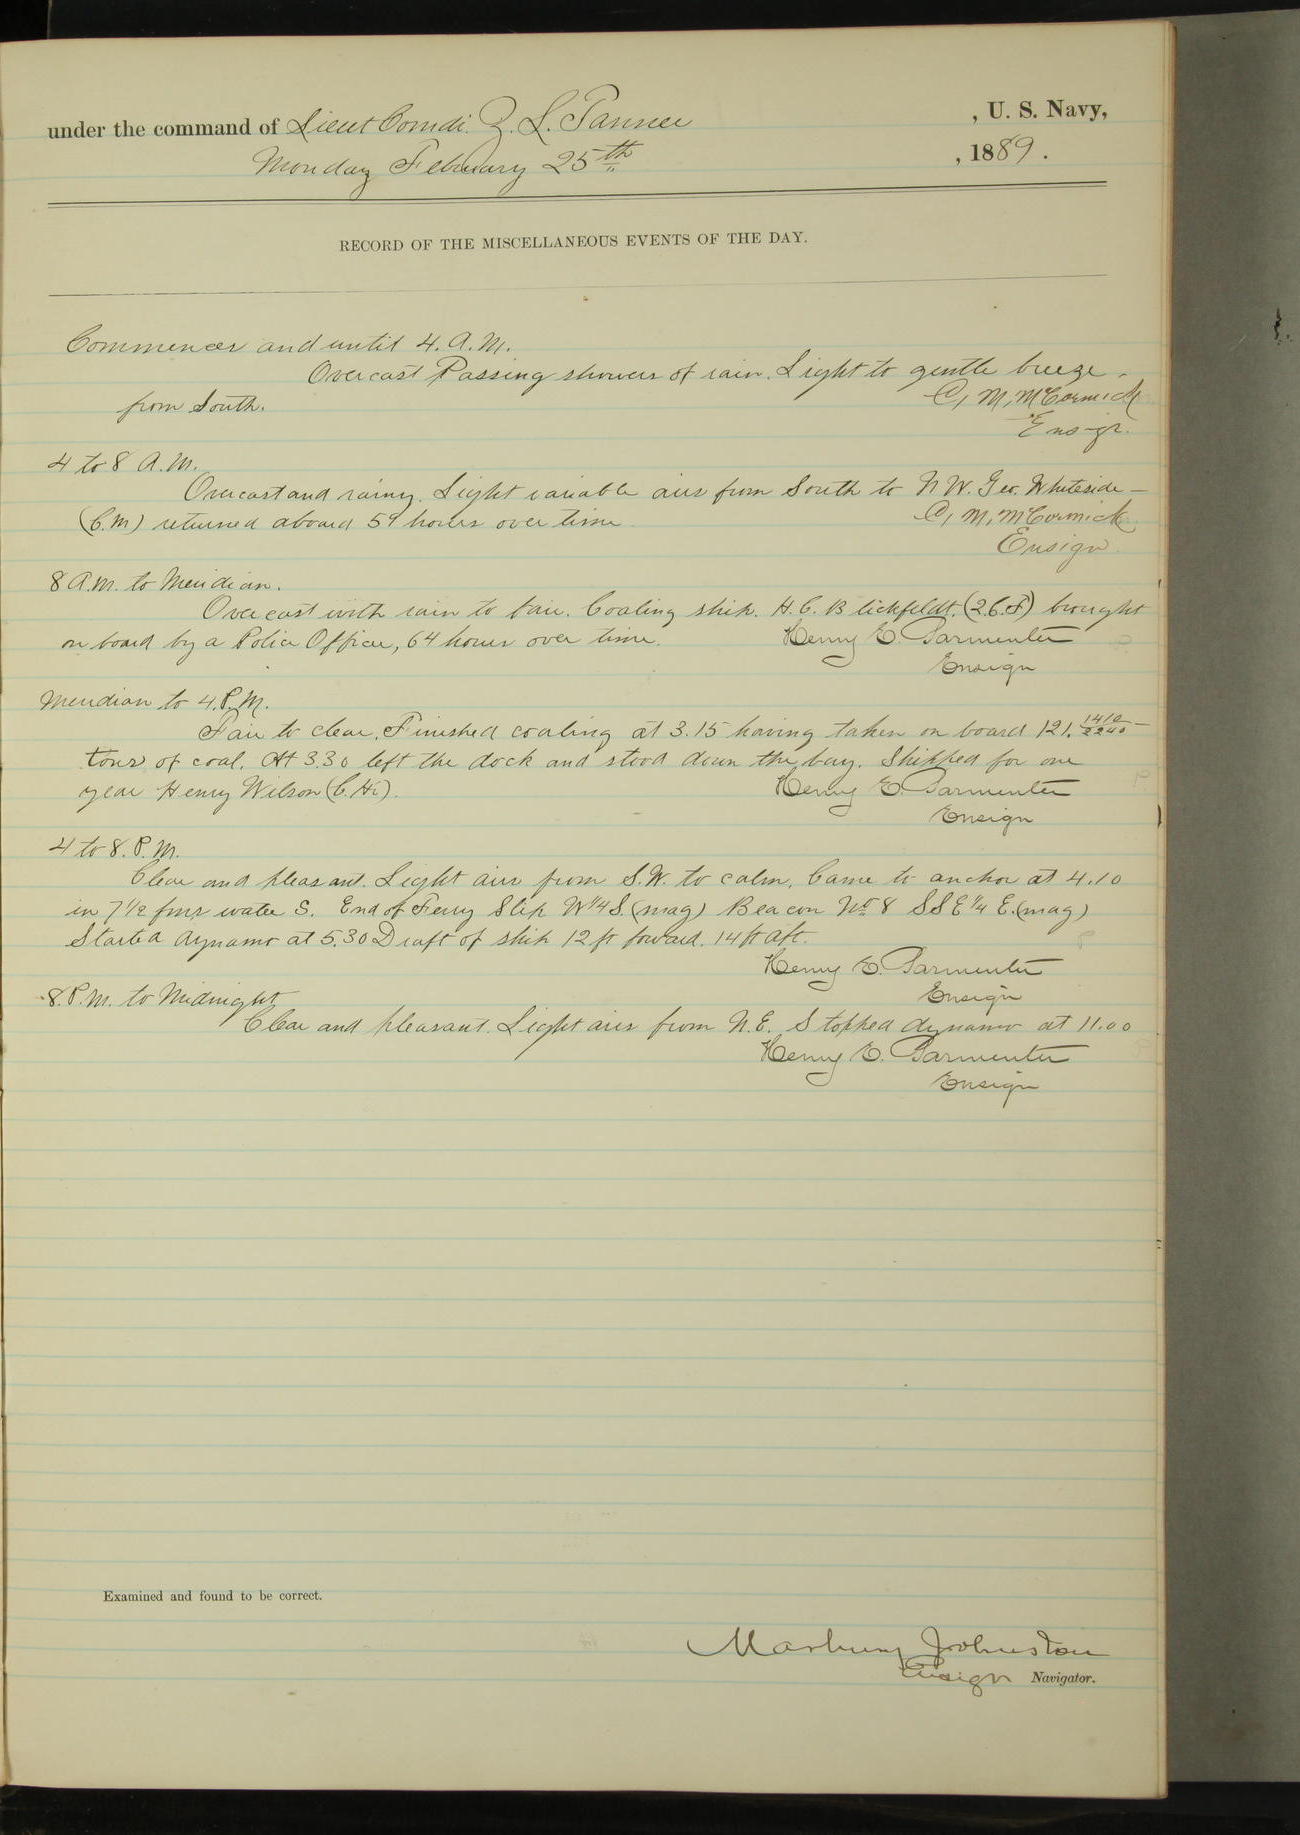 under the command of Lieut Comdr. Z. L. Tanner , U. S. Navy,
Monday February 25th , 1889.
RECORD OF THE MISCELLANEOUS EVENTS OF THE DAY.
Commences and until 4. A.M.
Overcast Passing showers of rain. Light to gentle breeze
from South. C, M, McCormick
Ensign.
4 to 8 A.M.
Overcast and rainy. Light variable airs from South to N W. Geo. Whiteside
(C.M) returned aboard 59 hours over time C, M, McCormick
Ensign.
8 A.M. to Meridian.
Overcast with rain to fair. Coaling ship. H. C. Blickfeldt. (2.C.F) brought
on board by a Police Officer, 64 hours over time. Henry E. Parmenter
Ensign
Meridian to 4. P.M.
Fair to clear. Finished coaling at 3.15 having taken on board 121. 1410/2240
tons of coal. At 3.30 left the dock and stood down the bay. Shipped for one
year Henry Wilson (C. Hi). Henry E. Parmenter
Ensign
4 to 8. P.M.
Clear and pleasant. Light airs from S.W. to calm. Came to anchor at 4.10
in 7 1/2 fms water S. End of Ferry Slip W 1/4 S. (mag) Beacon No 8 SSE 1/4 E. (mag)
Started dynamo at 5.30 Draft of ship 12 ft foward. 14 ft aft.
Henry E. Parmenter
Ensign
8. P.M. to Midnight
Clear and pleasant. Light airs from N.E. Stopped dynamo at 11.00
Henry E. Parmenter
Ensign
Examined and found to be correct.
Marbury Johnston
Ensign Navigator.